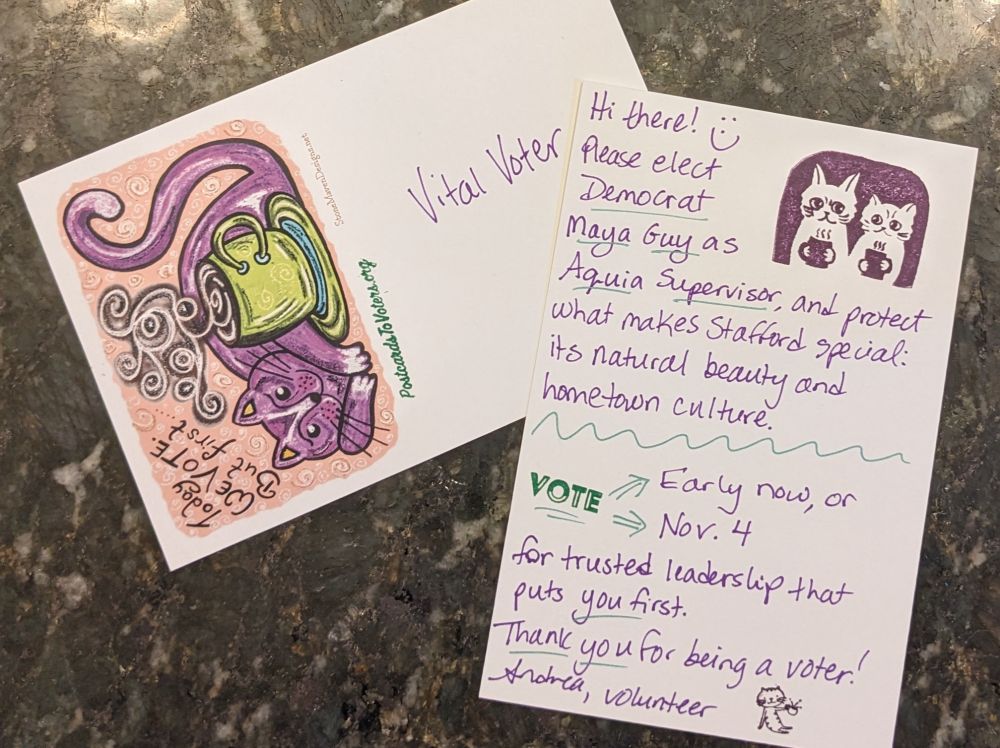 Today
WE VOTE.
But first ....
StoneMarenDesigns.net
PostcardsToVoters.org
Vital Voter
Hi there!
Please elect
Democrat
Maya Guy as
Aquia Supervisor, and protect
what makes Stafford special:
its natural beauty and
hometown culture.
VOTE
Early now, or
Nov. 4
for trusted leadership that
puts you first.
Thank you for being a voter!
Andrea, volunteer